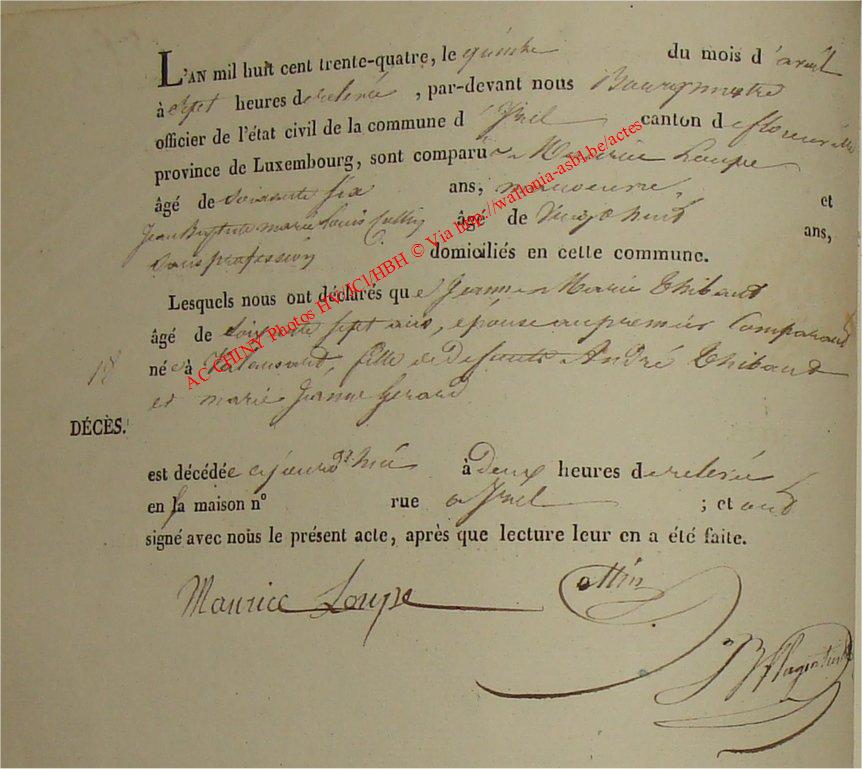 L'AN mil huit cent trente-quatre, le quinze du mois d'avril
à sept heures de relevée, par-devant nous Bourgmestre
officier de l'état civil de la commune d'Izel canton de florenville
province de Luxembourg, sont comparu Maurice Loupe
âgé de Soixante six ans, manoeuvre et
Jean Baptiste marie Louis Collin âgé de Vingt huit ans,
Sans profession domiciliés en cette commune.
Lesquels nous ont déclarés que Jeanne Marie Thibaut
âgé de soixante sept ans, épouse au premier Comparant
18 né à fille de Defunts André Thibaut
et marie Jeanne Gerard
DÉCÈS.
est décédée cejourd'hui à Deux heures de relevée
en la maison n° rue a Izel ; et ont
signé avec nous le présent acte, après que lecture leur en a été faite.
Maurice Loupe Collin
AC CHINY Photos HV/JCl/HBH © Via http://wallonia-asbl.be/actes